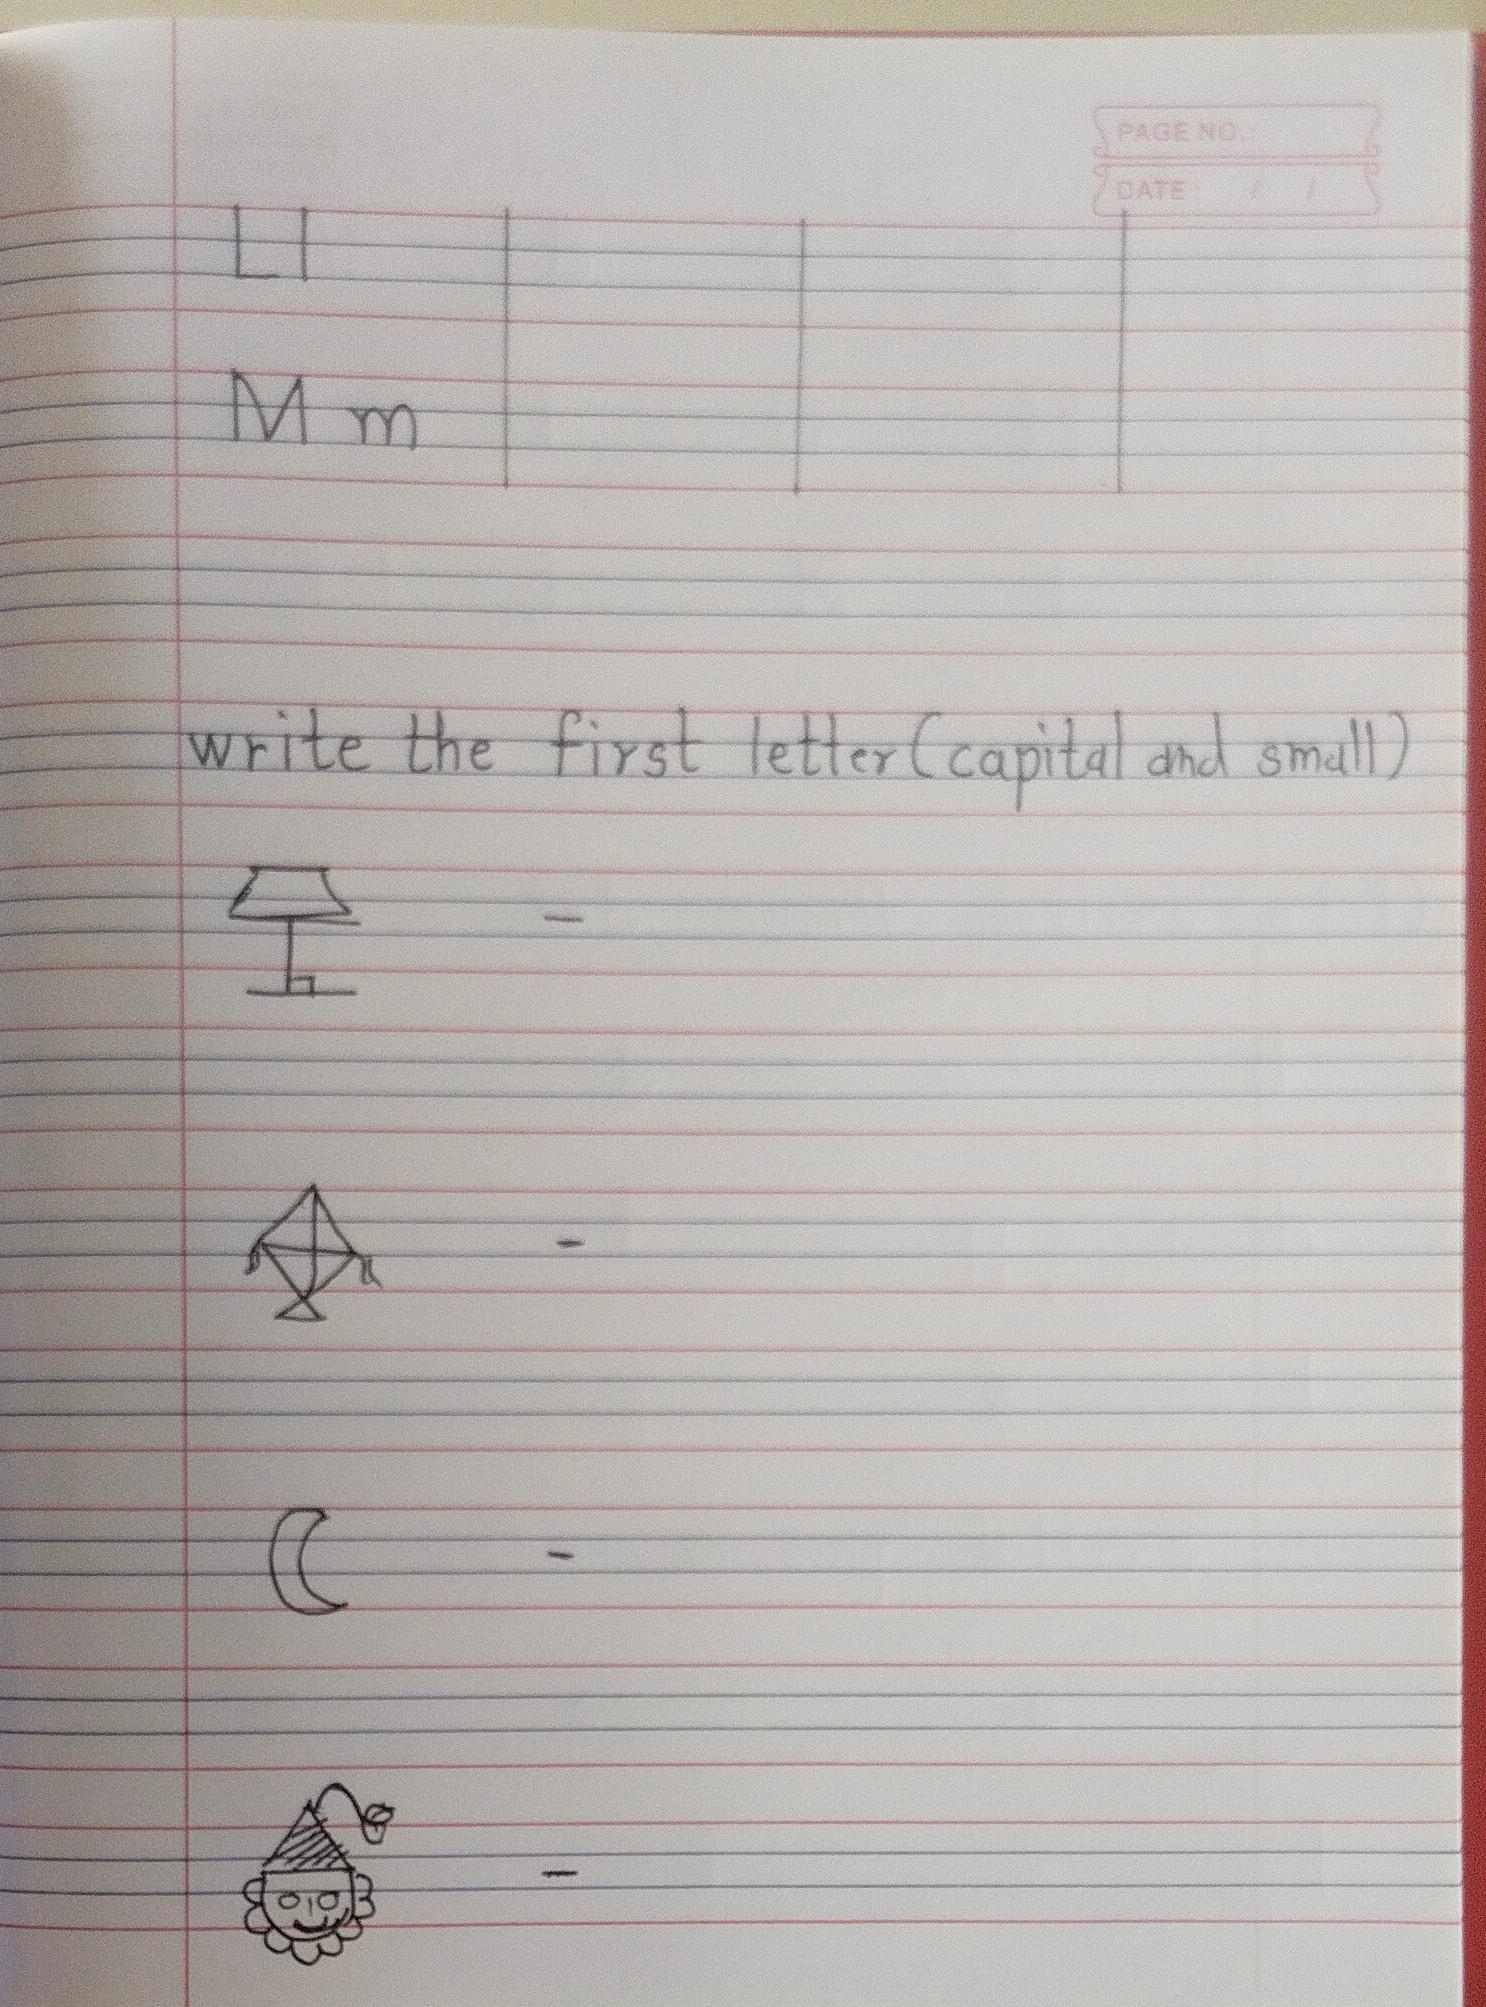 PAGE NO.:
DATE : / /
Ll
M m
write the first letter (capital and small)
-
-
-
-